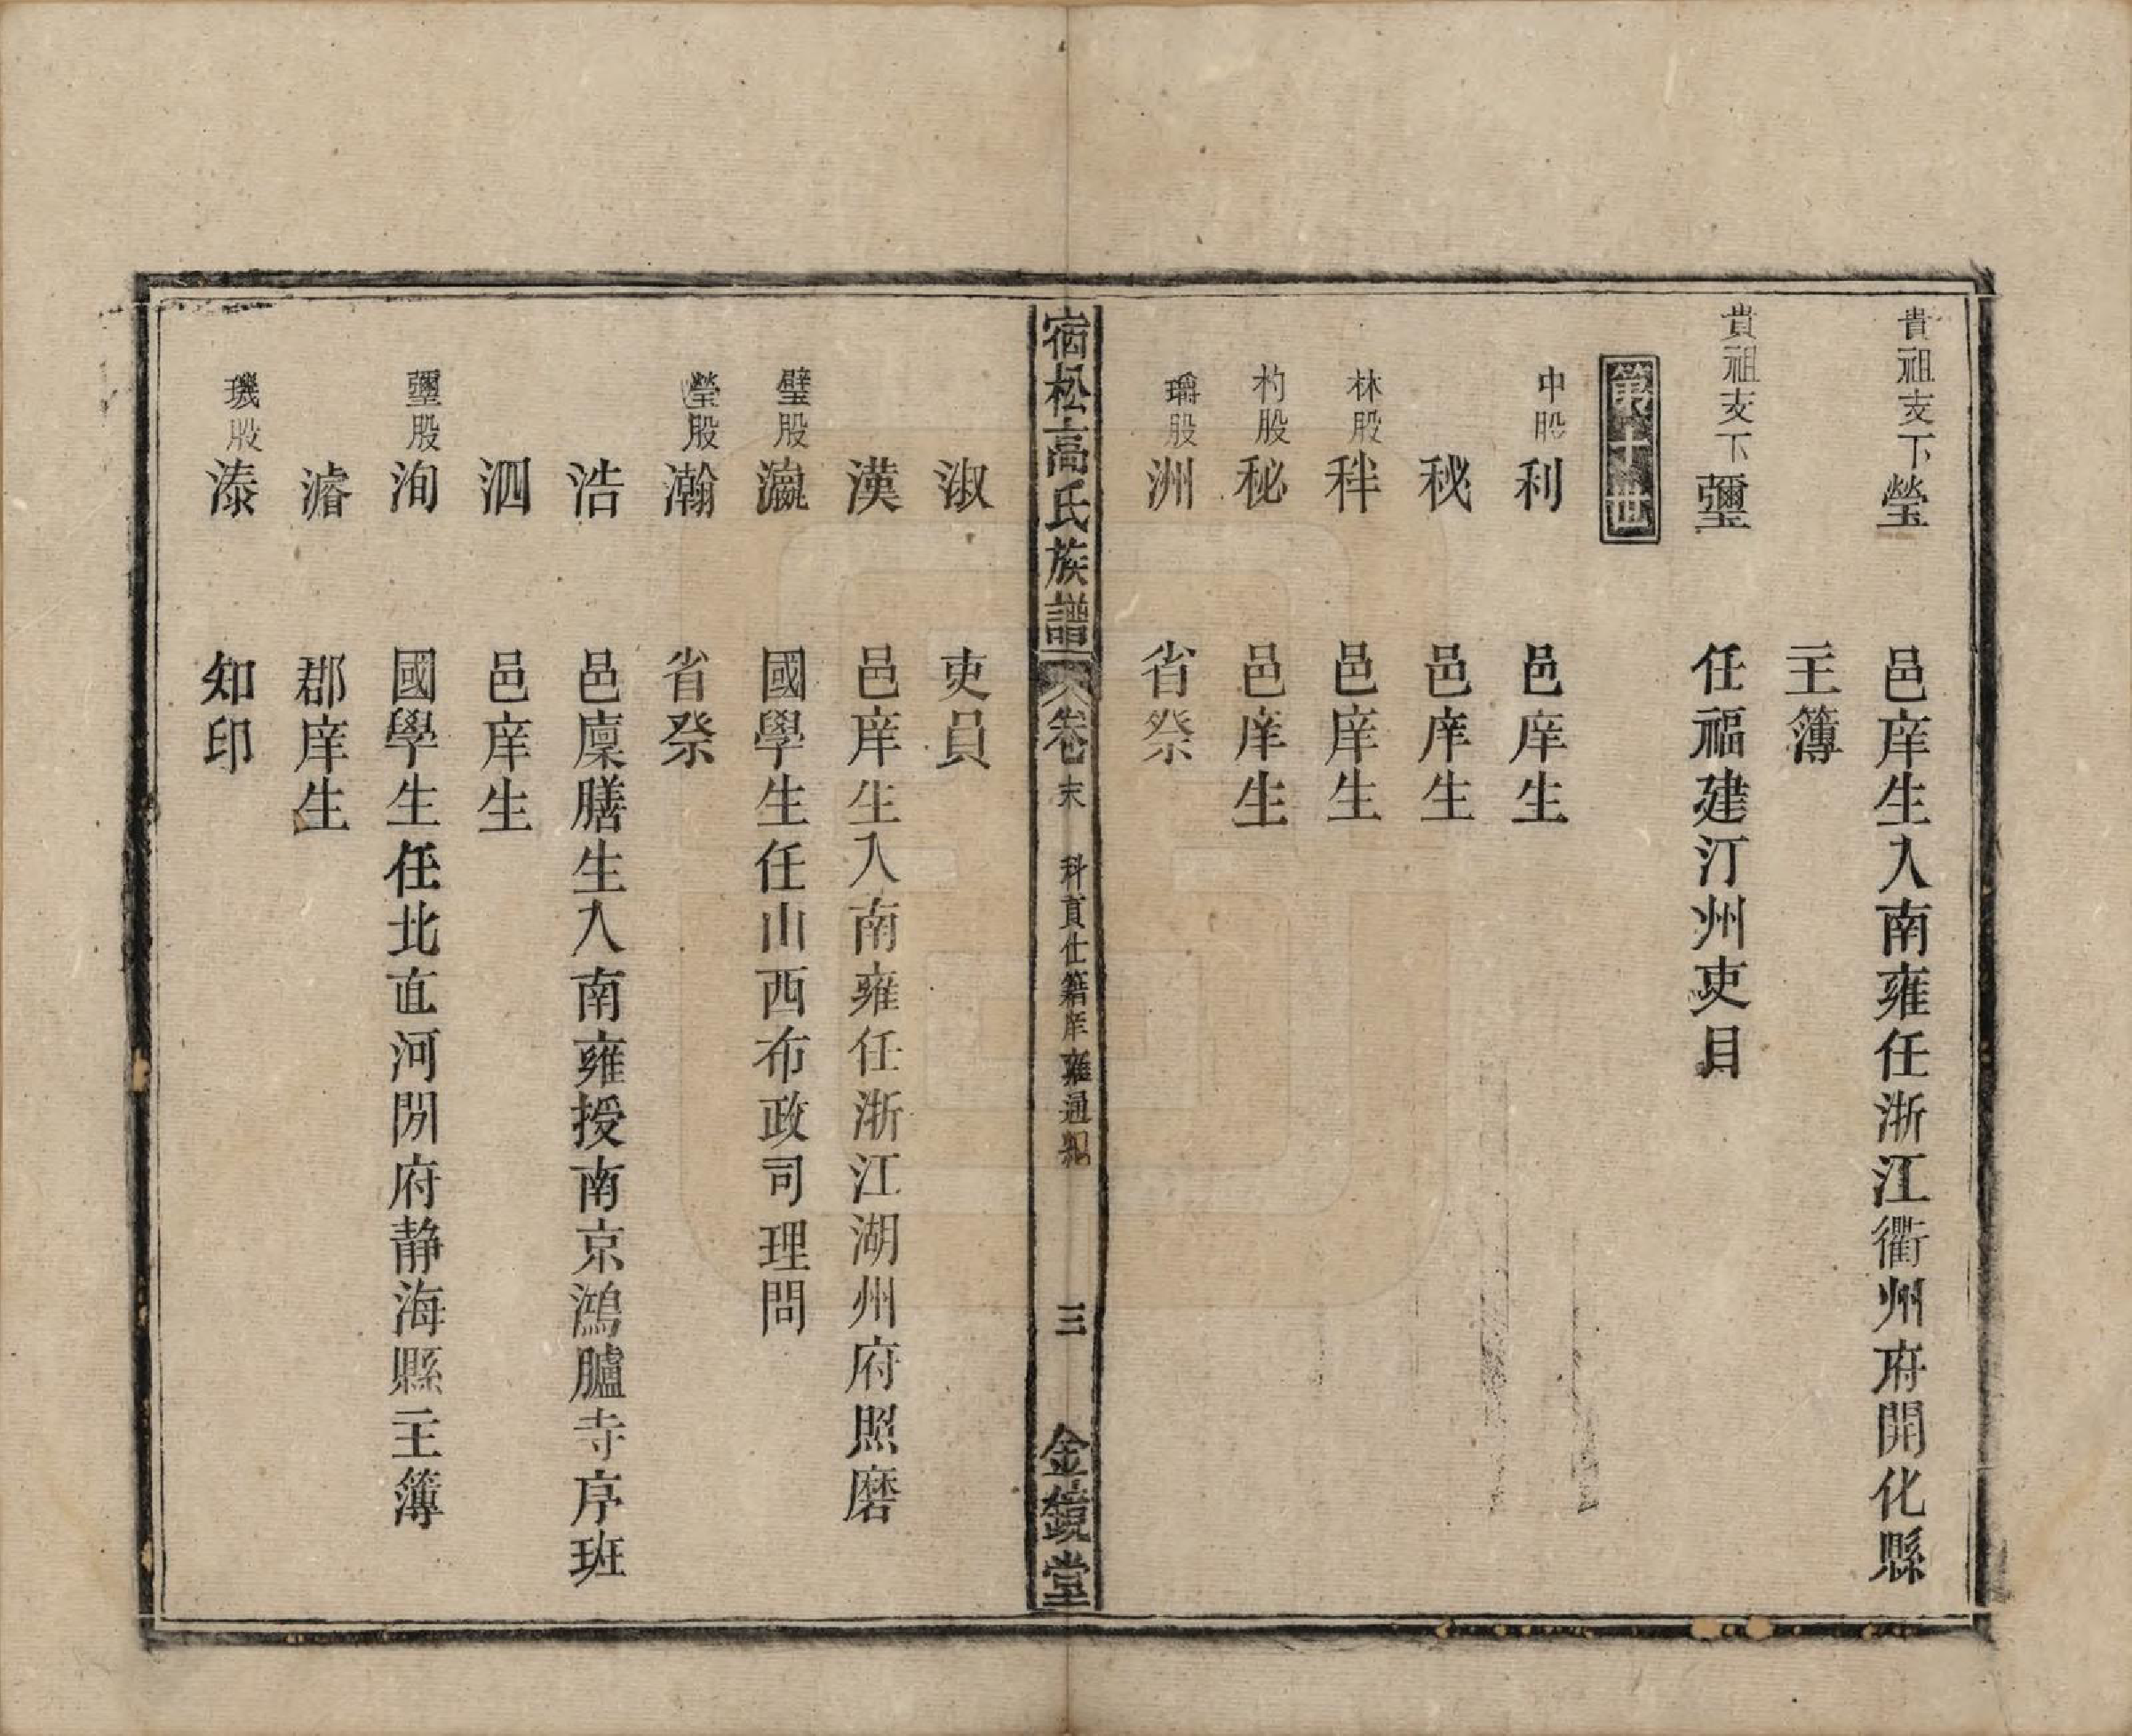 貴祖支下瑩　邑庠生入南雍任浙江衢州府開化縣
主簿
貴祖支下壐　任福建汀州吏目
第十世
中股利　邑庠生
秘　邑庠生
林股秚　邑庠生
杓股秘　邑庠生
股洲　省祭
宿松高氏族譜　卷末　科貢仕籍庠雍通紀　三　金鏡堂
淑　吏員
漢　邑庠生入南雍任浙江湖州府照磨
璧股瀛　國學生任山西布政司理問
瑩股瀚　省祭
浩　邑廩膳生入南雍授南京鴻臚寺序班
泗　邑庠生
壐股洵　國學生任北直河間府靜海縣主簿
濬　郡庠生
璣股溙　知印